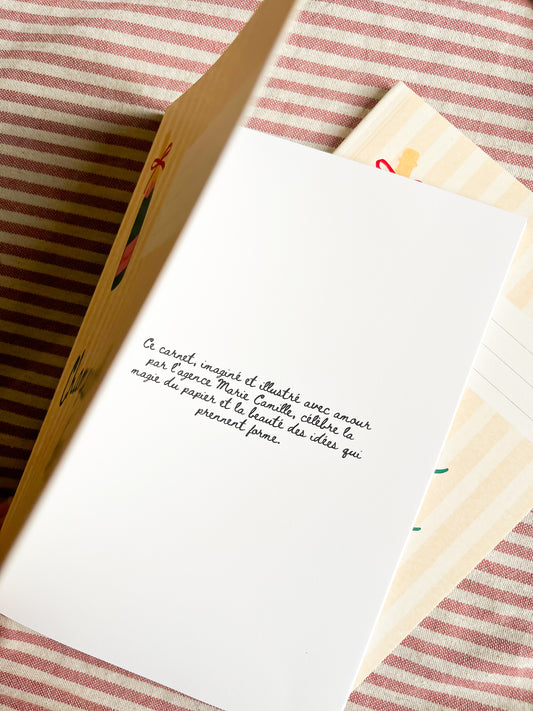 Ce carnet, imaginé et illustré avec amour
par l'agence Marie Camille, célèbre la
magie du papier et la beauté des idées qui
prennent forme.